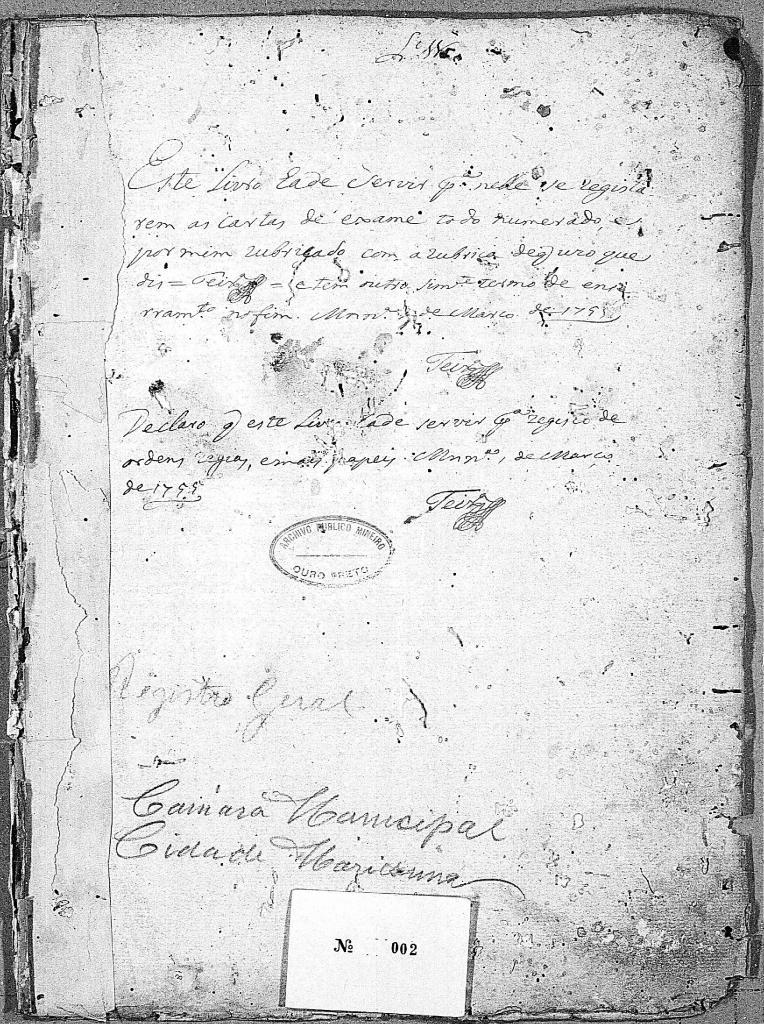 Este Livro hade servir pª nelle se regista
rem as cartas de exame todo numerado, e
por mim rubricado com a rubrica de q uzo que
dis = Teixrª = e tem outro simᵉ termo de ense
rramᵗᵒ no fim. Mnnª de Março de 1755
Teixrª
Declaro q este Livro hade servir pª registo de
ordens regias, e mais papeis. Mnnª, de Março
de 1755
Teixrª
ARCHIVO PUBLICO MINEIRO
OURO PRETO
Registro Geral
Camara Municipal
Cidade Marianna
Nº 002